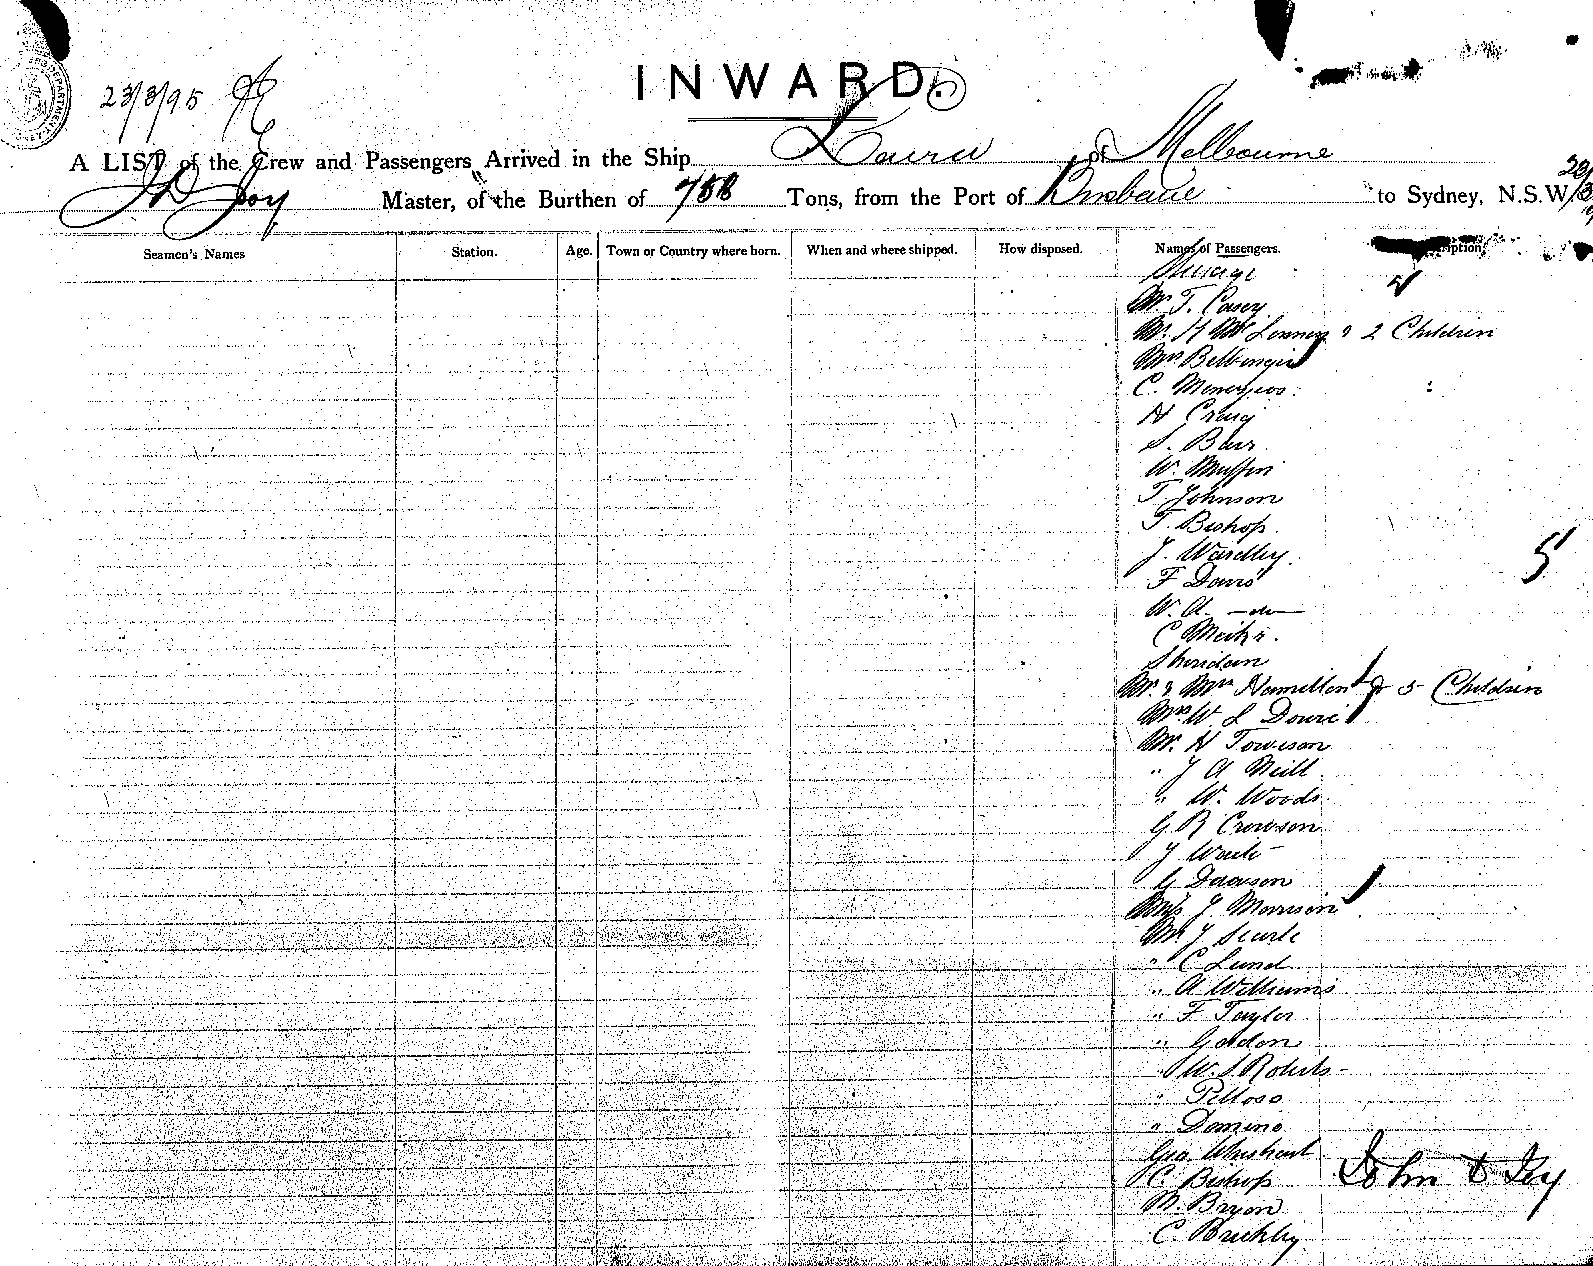 INWARD.
23/3/95
A LIST of the Crew and Passengers Arrived in the Ship of Melbourne
J D Joy Master, of the Burthen of 758 Tons, from the Port of Brisbane to Sydney, N.S.W.
Seamen's Names Station. Age. Town or Country where born. When and where shipped. How disposed. Names of Passengers.
Steerage
Mr. T. Casey
Mr. H 2 Children
Mrs
C.
H Craig
S. Barr
W.
T Johnson
T. Bishop.
J. Wardley.
F Davis
W. A. —do—
C
Sheridan
Mr. & Mrs Hamilton & 5 Children
Mrs W. L Dowie
Mr. H Toweson
" J A Neill
" W. Woods.
G R Crowson
J
G Dawson
J. Morrison
Mr. J Searle
" C Lund
" A Williams
" F Taylor
" Gordon
" W. S. Roberts
" Pelloso
" Domino
Geo
C. Bishop
M. Bryon
C.
5
John D Joy